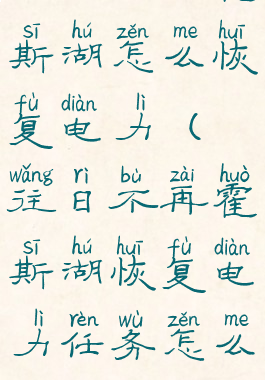 sī hú zěn me huī
斯湖怎么恢
fù diàn lì
复电力（
wǎng rì bù zài huò
往日不再霍
sī hú huī fù diàn
斯湖恢复电
lì rèn wù zěn me
力任务怎么